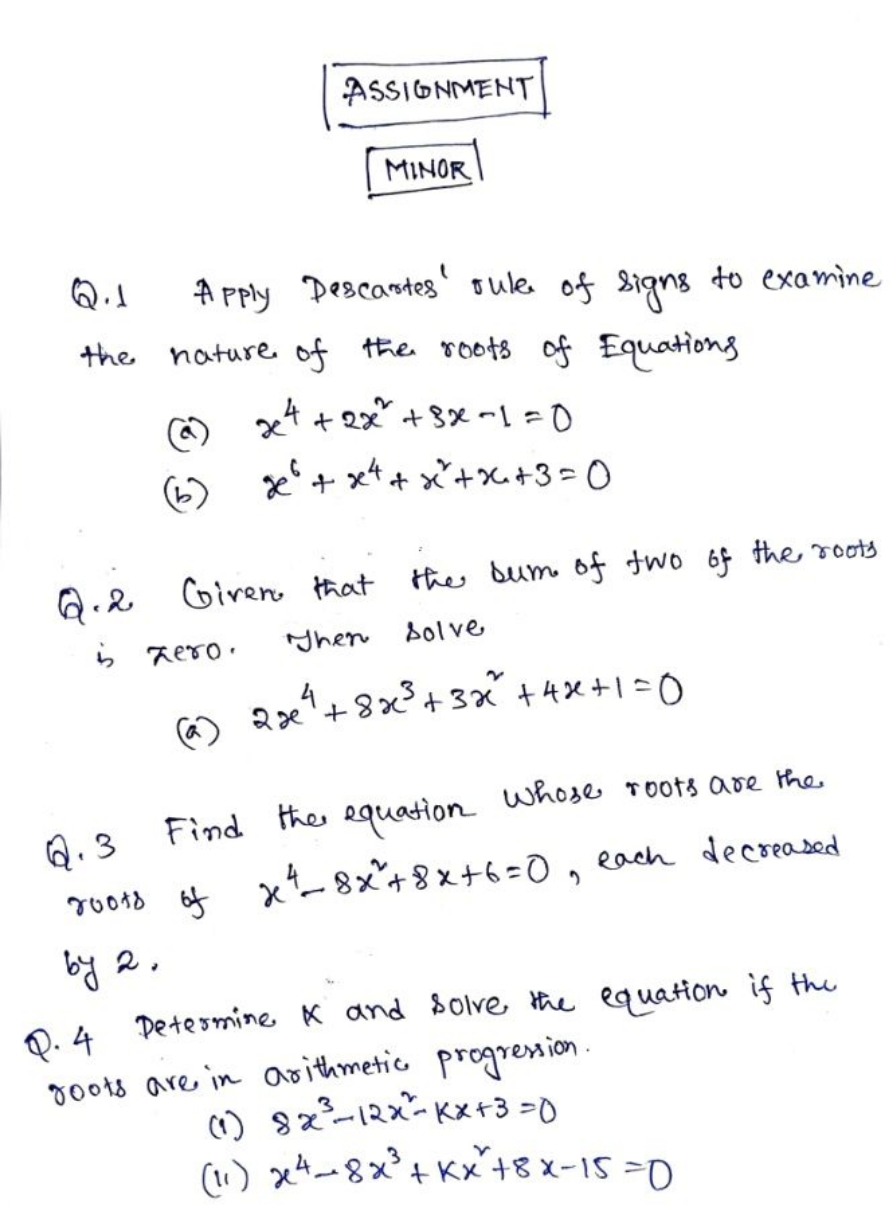 ASSIGNMENT
MINOR
Q.1 Apply Descartes' rule of signs to examine
the nature of the roots of Equations
(a) x⁴ + 2x² + 3x - 1 = 0
(b) x⁶ + x⁴ + x² + x + 3 = 0
Q.2 Given that the sum of two of the roots
is zero. Then solve
(a) 2x⁴ + 8x³ + 3x² + 4x + 1 = 0
Q.3 Find the equation whose roots are the
roots of x⁴ - 8x² + 8x + 6 = 0, each decreased
by 2.
Q.4 Determine K and solve the equation if the
roots are in arithmetic progression.
(i) 8x³ - 12x² - Kx + 3 = 0
(ii) x⁴ - 8x³ + Kx² + 8x - 15 = 0